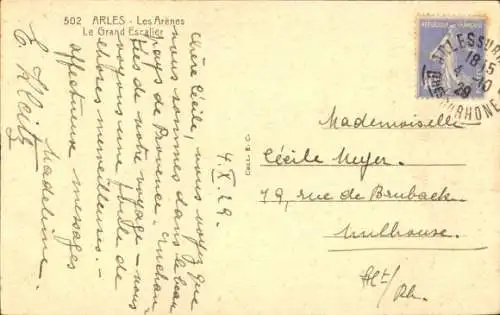 502 ARLES - Les Arènes
Le Grand Escalier
4. X. 29.
Chère Cécile, vous voyez que
nous sommes dans le beau
pays de Provence, enchan-
tées de notre voyage - nous
voyons une foule de
choses merveilleuses. -
affectueux messages
Madeleine.
E. Kleitz
RÉPUBLIQUE FRANÇAISE
ARLES SUR RHONE
18 15
4 - 10
29
Mademoiselle
Cécile Meyer.
79, rue de Brubach.
Mulhouse.
Ht/
Rh.